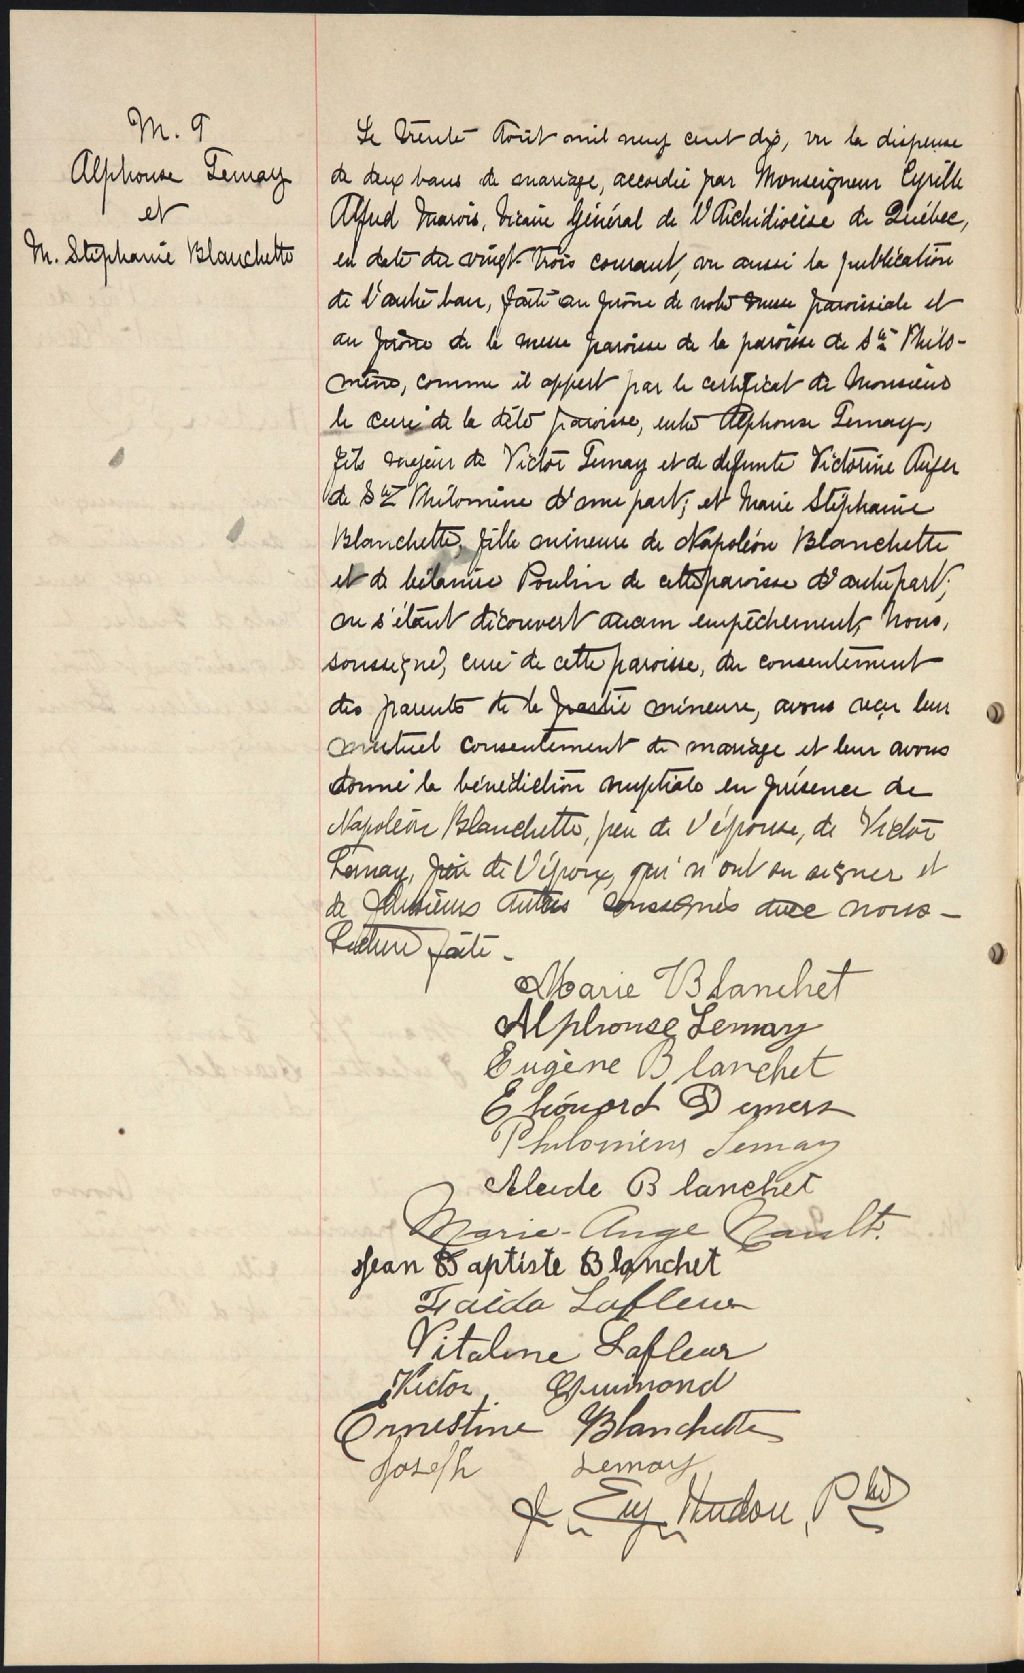 M. 9
Alphonse Lemay
et
M. Stéphanie Blanchette
Le trente Août mil neuf cent dix, vu la dispense
de deux bans de mariage, accordée par Monseigneur Cyrille
Alfred Marois, Vicaire Général de l'Archidiocèse de Québec,
en date du vingt-trois courant, vu aussi la publication
de l'autre ban, faite au prône de notre messe paroissiale et
au prône de la messe paroisse de la paroisse de Ste Philo-
mène, comme il appert par le certificat de Monsieur
le curé de la dite paroisse, entre Alphonse Lemay,
fils majeur de Victor Lemay et de defunte Victorine Auger
de Ste Philomène d'une part; et Marie Stéphanie
Blanchette, fille mineure de Napoléon Blanchette
et de Célanire Poulin de cette paroisse d'autre part;
ne s'étant découvert aucun empêchement, Nous,
soussigné, curé de cette paroisse, du consentement
des parents de la partie mineure, avons reçu leur
mutuel consentement de mariage et leur avons
donné la bénédiction nuptiale en présence de
Napoléon Blanchette, père de l'épouse, de Victor
Lemay, père de l'époux, qui n'ont su signer et
de plusieurs autres soussignés avec nous -
Lecture faite -
Marie Blanchet
Alphonse Lemay
Eugène Blanchet
Demers
Lemay
Alcide Blanchet
Marie-Ange
Jean Baptiste Blanchet
Lafleur
Vitaline Lafleur
Victor Guimond
Ernestine Blanchette
Joseph Lemay
J. Eug. Hudon, Ptre